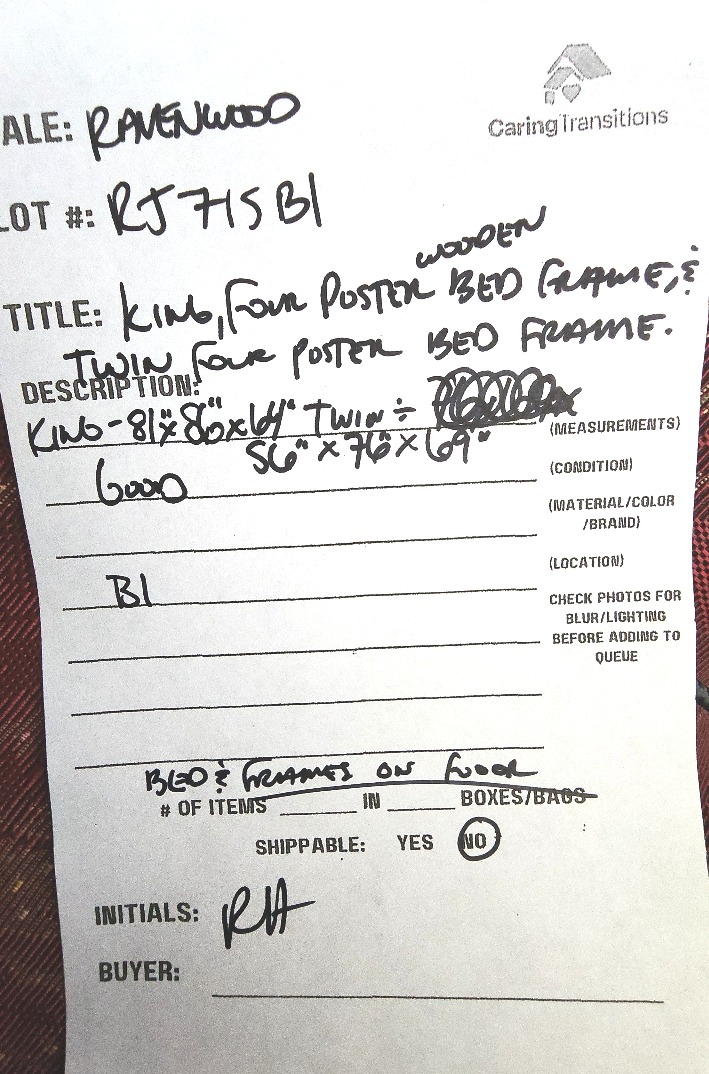 CaringTransitions
ALE: RAVENWOOD
LOT #: RJ715B1
WOODEN
TITLE: KING, FOUR POSTER BED FRAME, &
TWIN FOUR POSTER BED FRAME.
DESCRIPTION:
KING - 81" x 86" x 64" TWIN ÷
(MEASUREMENTS)
56" x 76" x 69"
GOOD
(CONDITION)
(MATERIAL/COLOR
/BRAND)
(LOCATION)
B1
CHECK PHOTOS FOR
BLUR/LIGHTING
BEFORE ADDING TO
QUEUE
BED & FRAMES ON FLOOR
# OF ITEMS ______ IN ______ BOXES/BAGS
SHIPPABLE: YES NO
INITIALS: RH
BUYER: